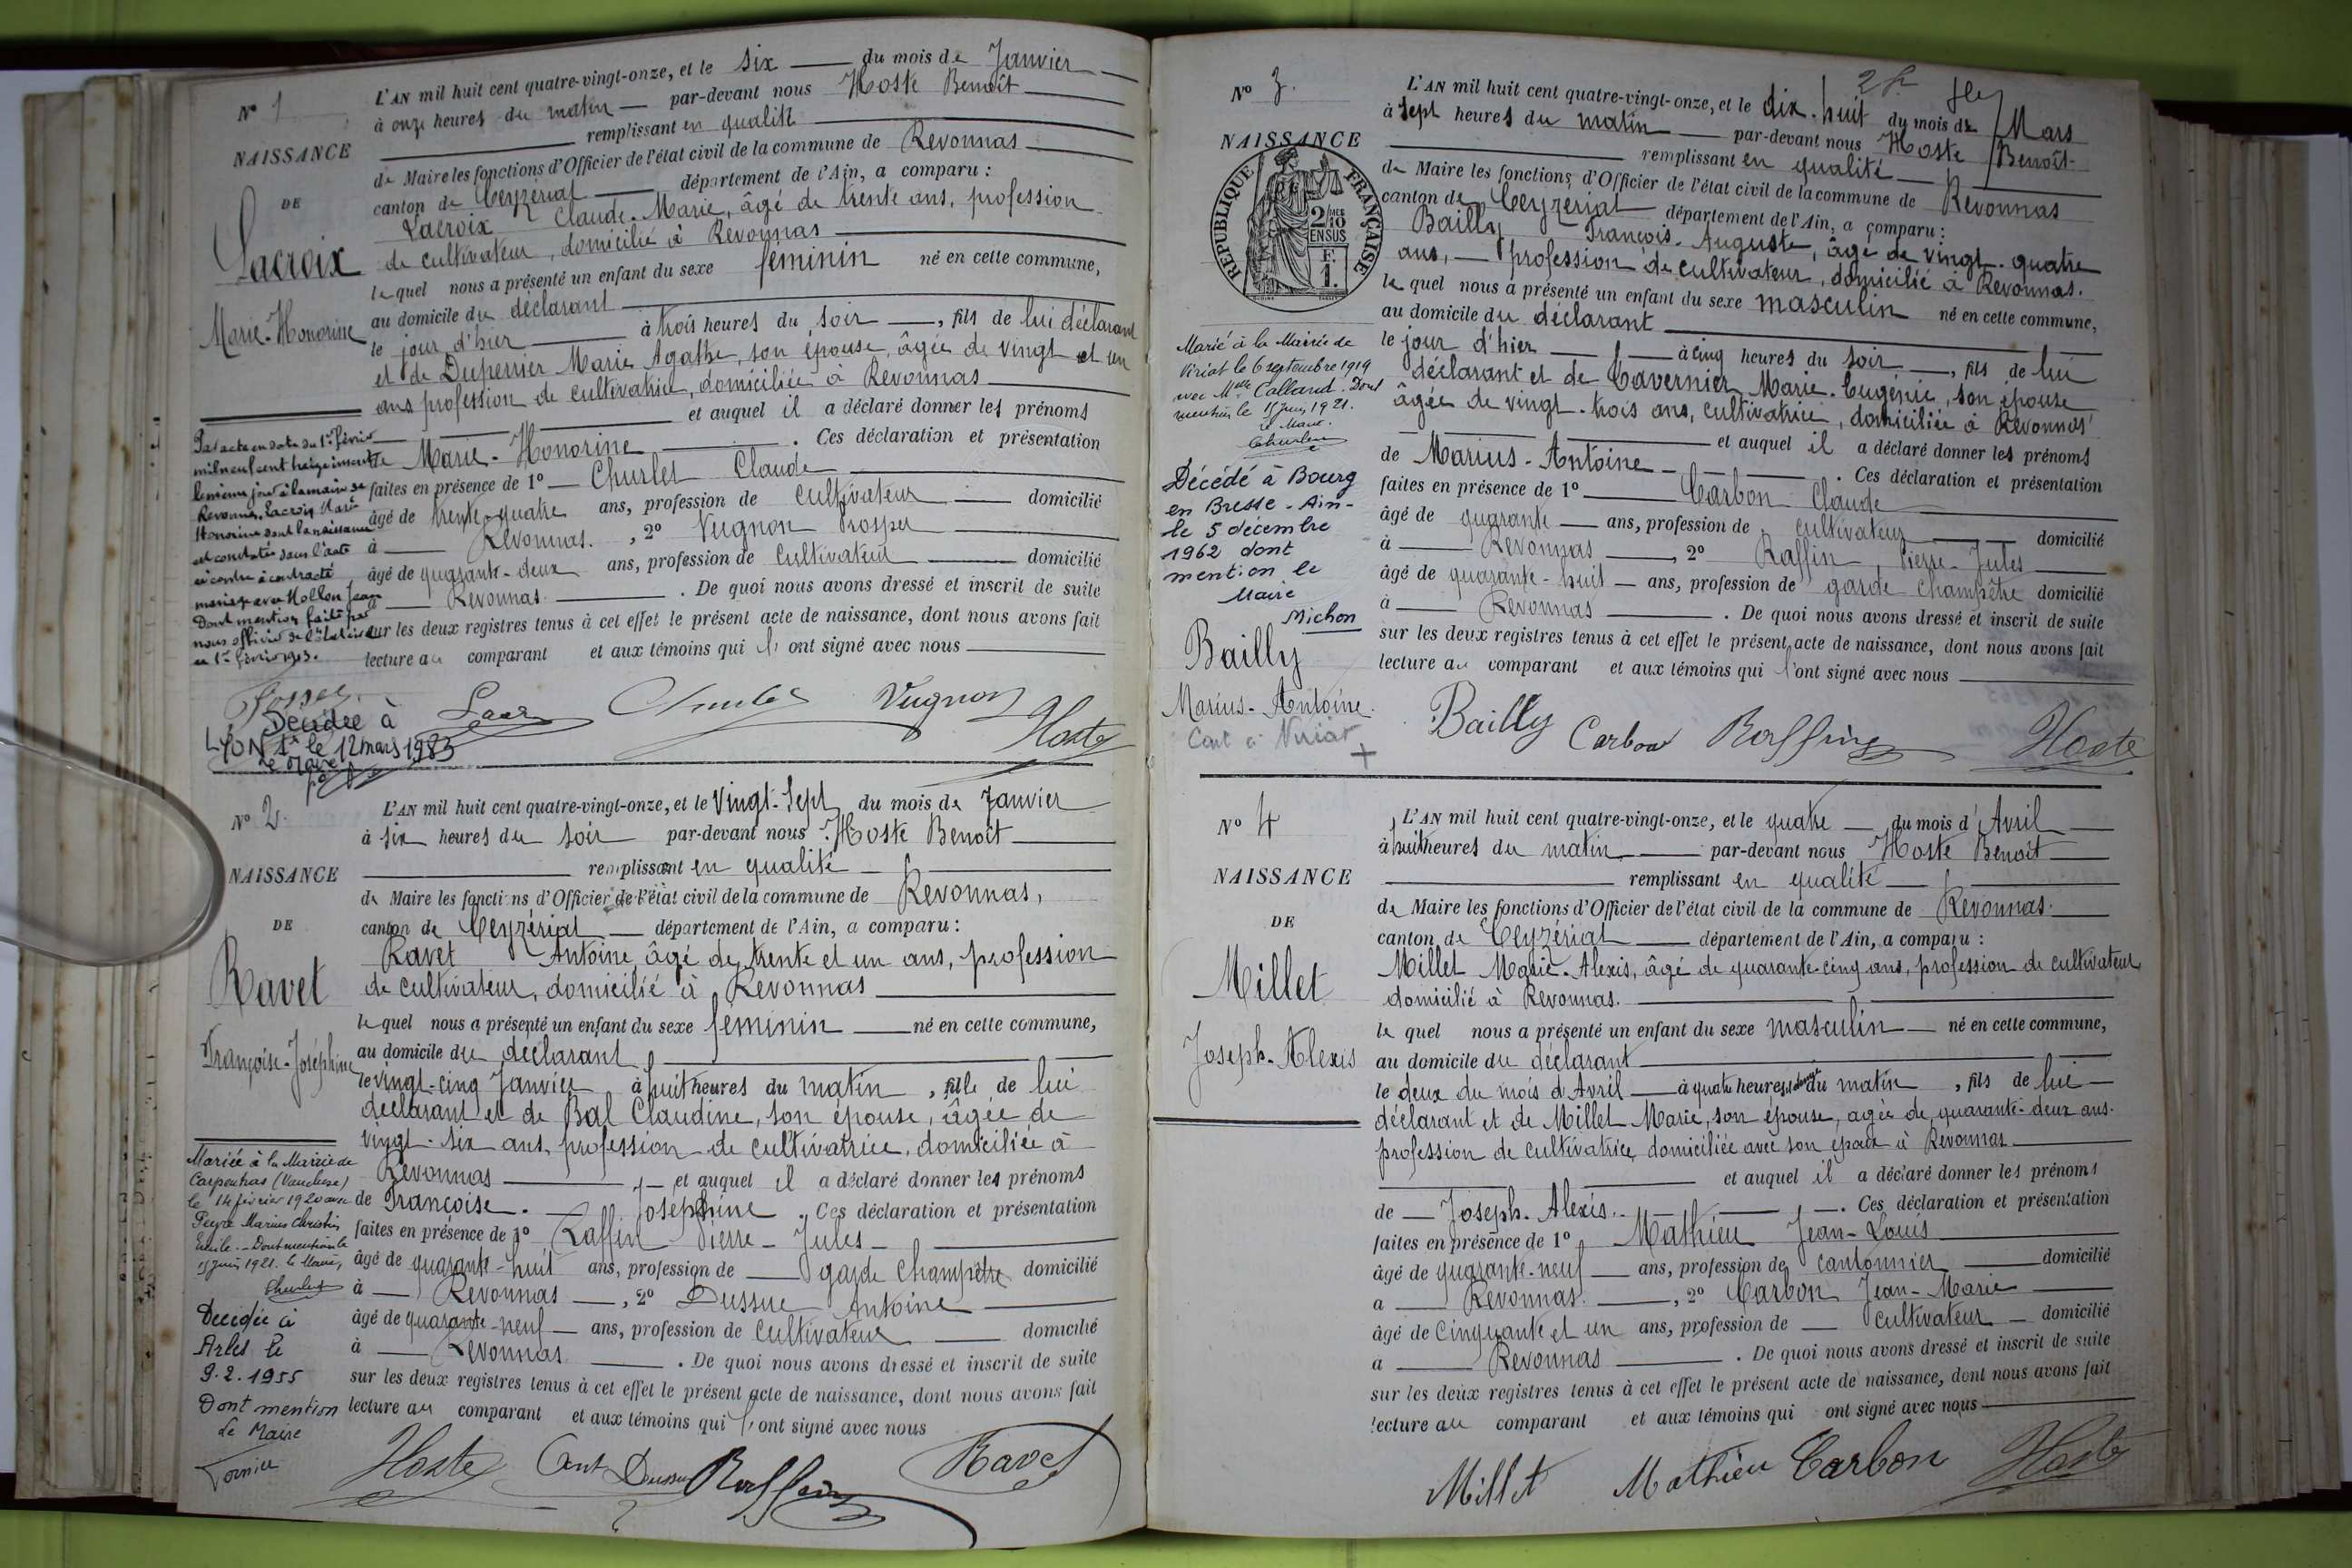 N° 1
NAISSANCE
DE
Lacroix
Marie-Honorine
L'AN mil huit cent quatre-vingt-onze, et le six du mois de Janvier
à onze heures du matin par-devant nous Hoste Benoît
remplissant en qualité
de Maire les fonctions d'Officier de l'état civil de la commune de Revonnas
canton de Ceyzériat département de l'Ain, a comparu :
Lacroix Claude-Marie, âgé de trente ans, profession
de cultivateur, domicilié à Revonnas
lequel nous a présenté un enfant du sexe féminin né en cette commune,
au domicile du déclarant
le jour d'hier à trois heures du soir, fils de lui déclarant
et de Dupernier Marie Agathe, son épouse, âgée de vingt et un
ans profession de cultivatrice, domiciliée à Revonnas
et auquel il a déclaré donner les prénoms
de Marie-Honorine . Ces déclaration et présentation
faites en présence de 1° Churlet Claude
âgé de trente-quatre ans, profession de cultivateur domicilié
à Revonnas. , 2° Vugnon Prosper
âgé de quarante-deux ans, profession de cultivateur domicilié
à Revonnas . De quoi nous avons dressé et inscrit de suite
sur les deux registres tenus à cet effet le présent acte de naissance, dont nous avons fait
lecture au comparant et aux témoins qui l'ont signé avec nous
Par acte en date du 1er février
mil neuf cent treize inscrit
le même jour à la mairie de
Revonnas, Lacroix Marie
Honorine dont la naissance
est constatée dans l'acte
ci contre a contracté
mariage avec Mollon Jean
Dont mention faite par
nous officier de l'état civil
le 1er février 1913.
Churlet Vugnon Hoste
Décédée à
LYON 1er le 12 mars 1983
Le Maire
N° 2.
NAISSANCE
DE
Ravet
Françoise-Joséphine
L'AN mil huit cent quatre-vingt-onze, et le Vingt-Sept du mois de Janvier
à six heures du soir par-devant nous Hoste Benoît
remplissant en qualité
de Maire les fonctions d'Officier de l'état civil de la commune de Revonnas,
canton de Ceyzériat département de l'Ain, a comparu :
Ravet Antoine, âgé de trente et un ans, profession
de cultivateur, domicilié à Revonnas
lequel nous a présenté un enfant du sexe féminin né en cette commune,
au domicile du déclarant
le vingt-cinq Janvier à huit heures du matin , fille de lui
déclarant et de Bal Claudine, son épouse, âgée de
vingt-six ans, profession de cultivatrice, domiciliée à
Revonnas et auquel il a déclaré donner les prénoms
de Françoise. Joséphine . Ces déclaration et présentation
faites en présence de 1° Raffin Pierre-Jules
âgé de quarante-huit ans, profession de garde champêtre domicilié
à Revonnas , 2° Dussue Antoine
âgé de quarante-neuf ans, profession de cultivateur domicilié
à Revonnas . De quoi nous avons dressé et inscrit de suite
sur les deux registres tenus à cet effet le présent acte de naissance, dont nous avons fait
lecture au comparant et aux témoins qui l'ont signé avec nous
Mariée à la Mairie de
Carpentras (Vaucluse)
le 14 février 1920 avec
Peyre Marius Christin
Emile. - Dont mention le
15 Juin 1921. Le Maire,
Churlet
Décédée à
Arles le
9.2.1955
Dont mention
Le Maire
Hoste Ant Dussue Raffin Ravet
N° 3.
NAISSANCE
RÉPUBLIQUE FRANÇAISE
2/10 EN SUS
F. 1.
L'AN mil huit cent quatre-vingt-onze, et le dix-huit du mois de Mars
à sept heures du matin par-devant nous Hoste Benoît
remplissant en qualité
de Maire les fonctions d'Officier de l'état civil de la commune de Revonnas
canton de Ceyzériat département de l'Ain, a comparu :
Bailly François-Auguste, âgé de vingt-quatre
ans, profession de cultivateur, domicilié à Revonnas.
lequel nous a présenté un enfant du sexe masculin né en cette commune,
au domicile du déclarant
le jour d'hier à cinq heures du soir , fils de lui
déclarant et de Tavernier Marie-Eugénie, son épouse
âgée de vingt-trois ans, cultivatrice, domiciliée à Revonnas
et auquel il a déclaré donner les prénoms
de Marius-Antoine . Ces déclaration et présentation
faites en présence de 1° Carbon Claude
âgé de quarante ans, profession de cultivateur domicilié
à Revonnas , 2° Raffin, Pierre-Jules
âgé de quarante-huit ans, profession de garde champêtre domicilié
à Revonnas . De quoi nous avons dressé et inscrit de suite
sur les deux registres tenus à cet effet le présent acte de naissance, dont nous avons fait
lecture au comparant et aux témoins qui l'ont signé avec nous
Marié à la Mairie de
Viriat le 6 septembre 1919
avec Melle Calland. Dont
mention le 15 Juin 1921.
Le Maire.
Churlet
Décédé à Bourg
en Bresse - Ain -
le 5 décembre
1962 dont
mention le
Maire
Michon
Bailly
Marius-Antoine.
Cant à Viriat
Bailly Carbon Raffin Hoste
N° 4
NAISSANCE
DE
Millet
Joseph-Alexis
L'AN mil huit cent quatre-vingt-onze, et le quatre du mois d'Avril
à huit heures du matin par-devant nous Hoste Benoît
remplissant en qualité
de Maire les fonctions d'Officier de l'état civil de la commune de Revonnas.
canton de Ceyzériat département de l'Ain, a comparu :
Millet Marie-Alexis, âgé de quarante-cinq ans, profession de cultivateur,
domicilié à Revonnas.
lequel nous a présenté un enfant du sexe masculin né en cette commune,
au domicile du déclarant
le deux du mois d'Avril à quatre heures et demie du matin , fils de lui
déclarant et de Millet Marie, son épouse, âgée de quarante-deux ans.
profession de cultivatrice, domiciliée avec son époux à Revonnas
et auquel il a déclaré donner les prénoms
de Joseph-Alexis. . Ces déclaration et présentation
faites en présence de 1° Mathieu Jean-Louis
âgé de quarante-neuf ans, profession de cantonnier domicilié
à Revonnas. , 2° Carbon Jean-Marie
âgé de cinquante et un ans, profession de cultivateur domicilié
à Revonnas . De quoi nous avons dressé et inscrit de suite
sur les deux registres tenus à cet effet le présent acte de naissance, dont nous avons fait
lecture au comparant et aux témoins qui ont signé avec nous
Millet Mathieu Carbon Hoste